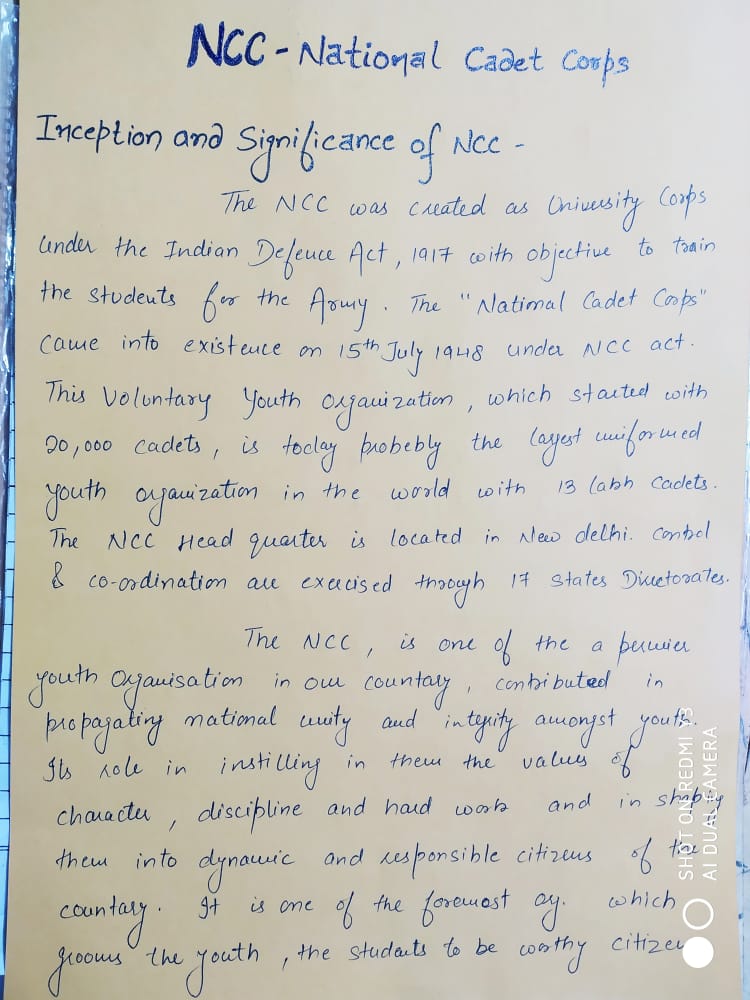 NCC - National Cadet Corps
Inception and Significance of NCC -
The NCC was created as University Corps
under the Indian Defence Act, 1917 with objective to train
the students for the Army. The "National Cadet Corps"
came into existence on 15th July 1948 under NCC act.
This Voluntary Youth Organization, which started with
20,000 cadets, is today probebly the largest uniformed
youth organization in the world with 13 lakh cadets.
The NCC Head quarter is located in New delhi. Control
& co-ordination are exercised through 17 states Directorates.
The NCC, is one of the a permier
youth Organisation in our countary, contributed in
propagating national unity and integrity amongst youth.
Its role in instilling in them the values of
character, discipline and hard work and in shaping
them into dynamic and responsible citizens of the
countary. It is one of the foremost og. which
grooms the youth, the students to be worthy citizen
SHOT ON REDMI Y3
AI DUAL CAMERA